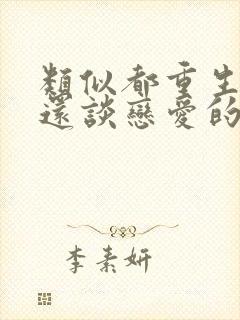 類似都重生
還談戀愛的
李素妍